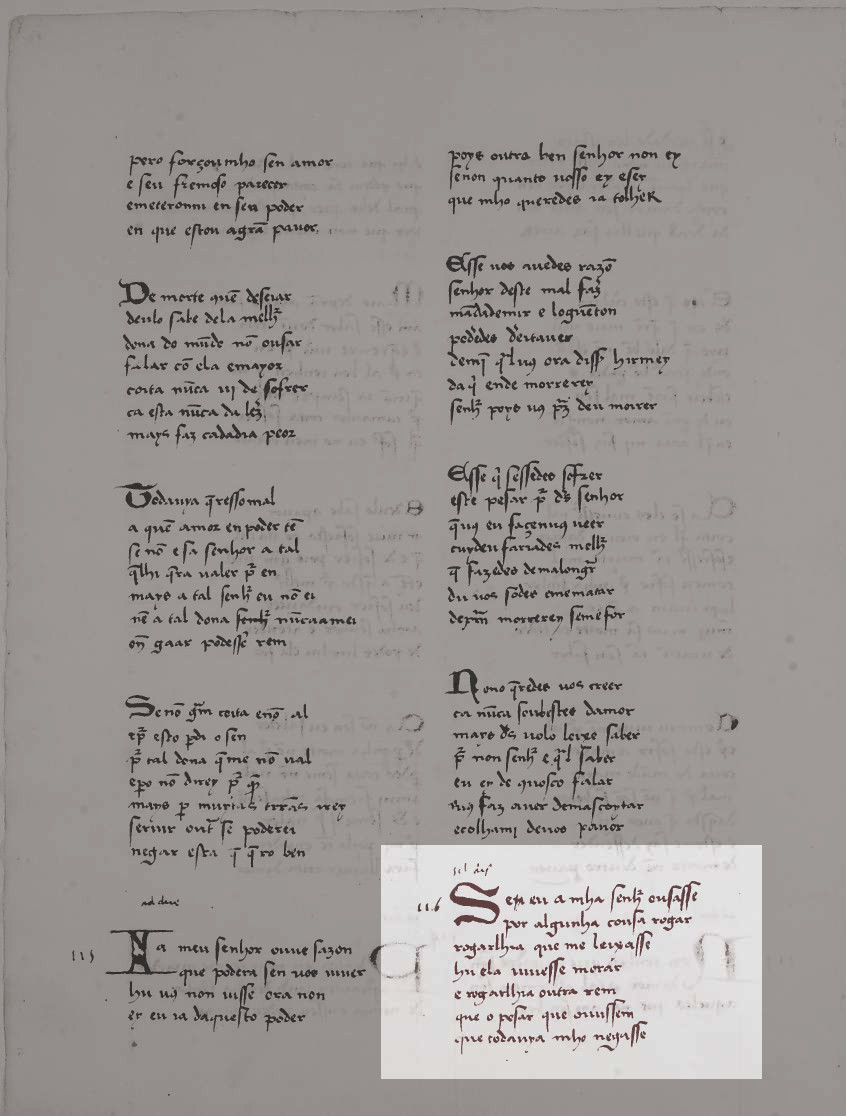 pero forçoumho sen amor
e seu fremoso parecer
emeteronmi en seu poder
en que estou agrã pauor
De morte quẽ deseiar
deulo sabe dela
dona do mũdo nõ ousar
falar cõ ela emayor
coita nũca ui de sofrer
ca esta nũca da
mays faz cadadia peor
Todauya
a quẽ amor en poder tẽ
se nõ e sa senhor a tal
q̃lhi q̃ra ualer en
mays a tal eu nõ ei
nẽ a tal dona nũcaamei
gaar podesse rem
Se nõ coita enõ al
esto o sen
tal dona q̃me nõ ual
nõ direy
mays muitas irey
seruir se poderei
negar esta q̃ q̃ro ben
ad dive
115
A meu senhor ouue sazon
que podera sen uos uiuer
hu uꝯ non uisse ora non
er eu ia daquesto poder
poys outro ben senhor non ey
senon quanto uosso ey eser
que mho queredes ia tolher
Esse uos auedes razõ
senhor deste mal
e loguẽton
podedes
ora hirmey
ende morrerey
poys deu morrer
Esse sofrer
este pesar senhor
q̃uꝯ eu façenuꝯ ueer
cuydeu fariades
q̃ fazedes
du uos sodes emematar
morrerey semefor
Nono q̃redes uos creer
ca nũca soubestes damor
mays uolo leixe saber
non saber
eu er de quosco falar
faz auer demascontar
ecolhami deuos pauor
116
Seta eu a mha ousasse
por algunha cousa rogar
rogarlhia que me leixasse
hu ela uiuesse morar
e rogarlhia outra rem
que o pesar que ouuissem
que todauya mho negasse